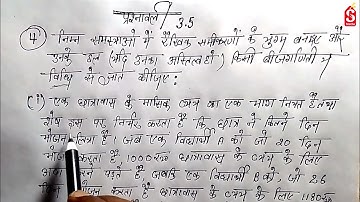 प्रश्नावली 3.5
④ निम्न समस्याओं में रैखिक समीकरणों के युग्म बनाइए और
उनके हल (यदि उनका अस्तित्व हो) किसी बीजगणितीय
विधि से ज्ञात कीजिए:
(i) एक छात्रावास के मासिक व्यय का एक भाग नियत है तथा
शेष इस पर निर्भर करता है कि छात्र ने कितने दिन
भोजन लिया है। जब एक विद्यार्थी A को जो 20 दिन
भोजन करता है, 1000 रु० छात्रावास के व्यय के लिए
अदा करने पड़ते हैं, जबकि एक विद्यार्थी B को, जो 26
दिन भोजन करता है छात्रावास के व्यय के लिए 1180रु०